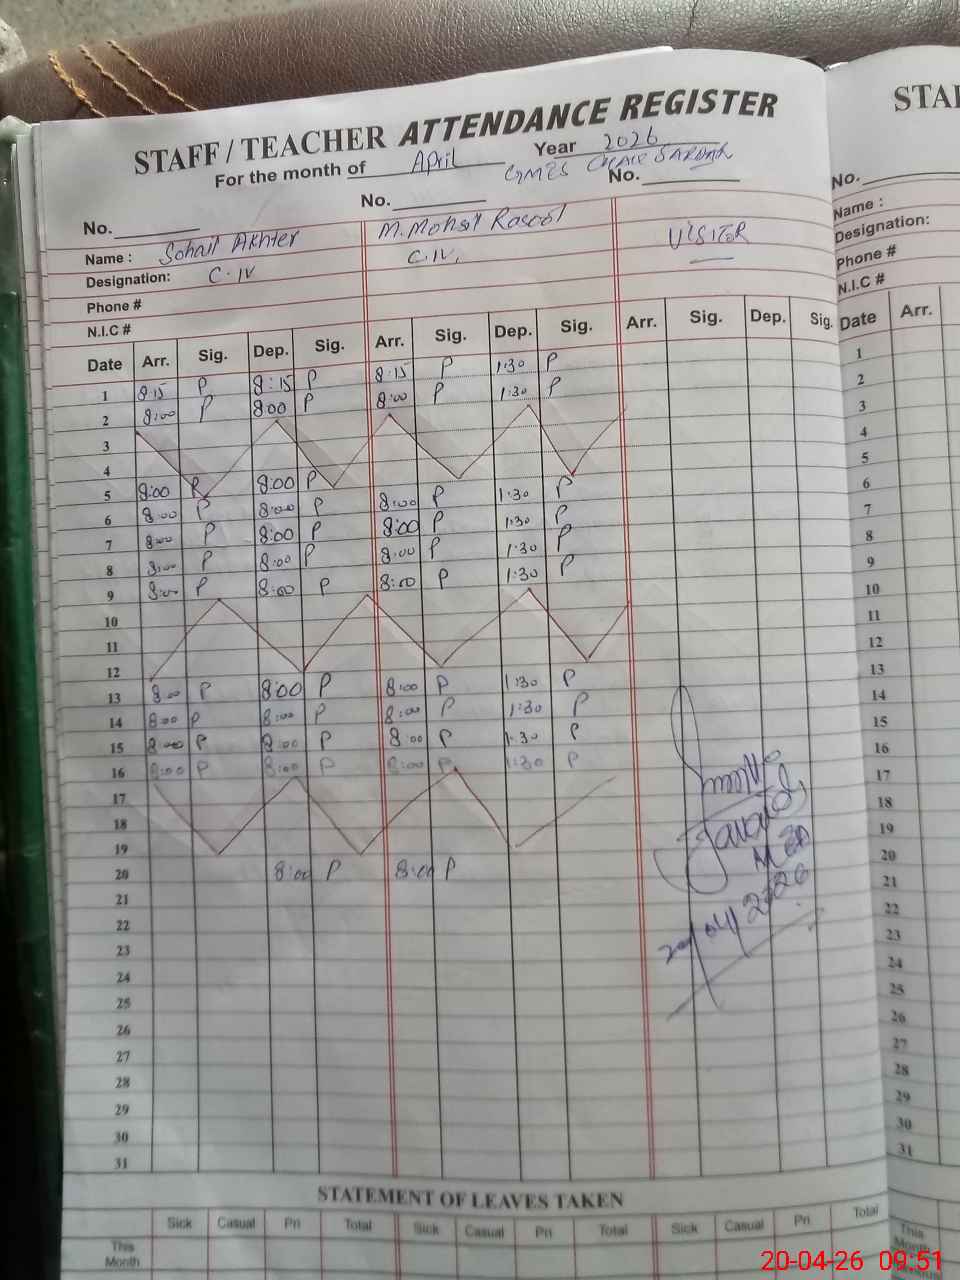 STAFF / TEACHER ATTENDANCE REGISTER
STA
For the month of April Year 2026
No. No. No. No.
Name : Sohail Akhter M. Mohsil Rasool VISITOR Name :
Designation: C.IV C.IV, Designation:
Phone # Phone #
N.I.C # N.I.C #
Date Arr. Sig. Dep. Sig. Arr. Sig. Dep. Sig. Arr. Sig. Dep. Sig. Date Arr.
1 8:15 P 8:15 P 8:15 P 1:30 P 1
2 8:00 P 8:00 P 8:00 P 1:30 P 2
3 3
4 4
5 8:00 P 8:00 P 5
6 8:00 P 8:00 P 8:00 P 1:30 P 6
7 8:00 P 8:00 P 8:00 P 1:30 P 7
8 8:00 P 8:00 P 8:00 P 1:30 P 8
9 8:00 P 8:00 P 8:00 P 1:30 P 9
10 10
11 11
12 12
13 8:00 P 8:00 P 8:00 P 1:30 P 13
14 8:00 P 8:00 P 8:00 P 1:30 P 14
15 8:00 P 8:00 P 8:00 P 1:30 P 15
16 8:00 P 8:00 P 8:00 P 1:30 P 16
17 17
18 18
19 19
20 8:00 P 8:00 P 20
21 21
22 22
23 23
24 24
25 25
26 26
27 27
28 28
29 29
30 30
31 31
Javaid
20/04/2026
STATEMENT OF LEAVES TAKEN
Sick Casual Pri Total Sick Casual Pri Total Sick Casual Pri Total
This Month This Month
20-04-26 09:51